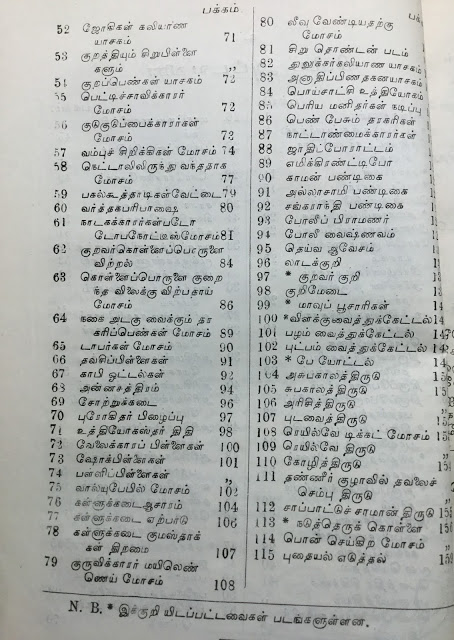 பக்கம்.
52 ஜோகிகள் கலியாண
யாசகம் 71
53 குறத்தியும் சிறுபிள்ளை
களும் ,,
54 குறப்பெண்கள் யாசகம் 72
55 பெட்டிச்சாவிக்காரர்
மோசம் 72
56 குடுகுடுப்பைக்காரர்கள்
மோசம் 73
57 வம்புச் சிறிக்கிகள் மோசம் 74
58 கெட்டாலிலிருந்து வந்ததாக
மோசம் 77
59 பகல்கூத்தாடிகள்வேட்டை 79
60 வர்த்தகபரிபாஷை 80
61 நாடகக்காரர்கள்படோ
டோபநோட்டீஸ்மோசம் 81
62 குறவர்கொள்ளைப்பொருளை
விற்றல் 84
63 கொள்ளைப்பொருளை குறை
ந்த விலைக்கு விற்பதாய்
மோசம் 86
64 நகை அடகு வைக்கும் தா
சுரிப்பெண்கள் மோசம் 89
65 டாபர்கள் மோசம் 90
66 தவசிப்பிள்ளைகள் 91
67 காபி ஒட்டல்கள் 92
68 அன்னசத்திரம் 94
69 சோற்றுக்கடை 96
70 புரோகிதர் பிழைப்பு 97
71 உத்தியோகஸ்தர் திதி 98
72 வேலைக்காரப் பிள்ளைகள் 100
73 ஷோக்பிள்ளைகள் 101
74 பள்ளிப்பிள்ளைகள் ,,
75 வால்யுபேபில் மோசம் 102
76 கள்ளுக்கடைஆசாரம் 104
77 கள்ளுக்கடை ஏற்பாடு 106
78 கள்ளுக்கடை குமஸ்தாக்
கள் திறமை 107
79 குருவிக்காரர் மயிலெண்
ணெய் மோசம் 108
பக்க
80 லீவு வேண்டியதற்கு
மோசம்
81 சிறு தொண்டன் படம்
82 துலுக்சர்கலியாண யாசகம்
83 அனாதிப்பிணதகனயாசகம்
84 பொய்சாட்சி உத்தியோகம்
85 பெரிய மனிதர்கள் நடிப்பு
86 பெண் பேசும் தரகரிகள்
87 நாட்டாண்மைக்காரர்கள்
88 ஜாதிப்போராட்டம்
89 எமிக்கிரண்ட்டிபோ
90 காமன் பண்டிகை
91 அல்லாசாமி பண்டிகை
92 சங்கராந்தி பண்டிகை
93 போலிப் பிராமணர்
94 போலி வைஷ்ணவம்
95 தெய்வ ஆவேசம்
96 லாடக்குறி
97 * குறவர் குறி
98 குறிமேடை
99 * மாவுப் பூசாரிகள்
100 *விளக்குவைத்துக்கேட்டல்
101 பழம் வைத்துக்கேட்டல்
102 புட்பம் வைத்துக்கேட்டல்
103 * பே யோட்டல்
104 அசுபகாலத்திருடு
105 சுபகாலத்திருடு
106 அரிசித் திருடு
107 புடவைத்திருடு
108 ரெயில்வே டிக்கட் மோசம்
109 ரெயில்வே திருடு
110 கோழித்திருடு
111 தண்ணீர் குழாவில் தவலைச்
செம்பு திருடு
112 சாப்பாட்டுச் சாமான் திருடு
113 * நடுத்தெருக் கொள்ளை
114 பொன் செய்கிற மோசம்
115 புதையல் எடுத்தல்
N. B. * இக்குறி யிடப்பட்டவைகள் படங்களுள்ளன.